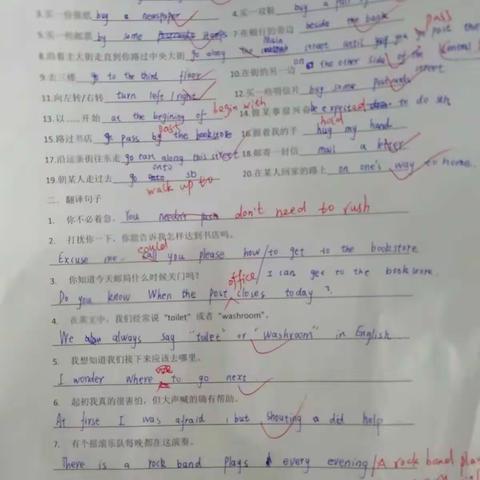 3.买一份报纸 buy a newspaper 4.买一双鞋 buy a
5.买一些邮票 buy some stamps 7.在银行的旁边 beside the bank
8.沿着主大街走直到你路过中央大街 go along the main street until you go past the Central
pass
9.去三楼 go to the third floor 10.在街的另一边 on the other side of the street
11.向左转/右转 turn left / right 12.买一些明信片 buy some postcards
13.以……开始 at the begining of begin with 14. be excited to do sth
15.路过书店 go pass by the bookstore past 16.握着我的手 hug my hand hold
17.沿这条街往东走 go east along this street 18.邮寄一封信 mail a letter
19.朝某人走过去 go onto sb walk up to 20.在某人回家的路上 on one's way to home
二、翻译句子
1. 你不必着急。 You needn't don't need to rush
2. 打扰你一下，你能告诉我怎样到达书店吗。
could
Excuse me. call you please how / to get to the bookstore
3. 你知道今天邮局什么时候关门吗？ office I can get to the bookstore
Do you know When the post closes today ?
4. 在英文中，我们经常说 "toilet" 或者 "washroom"。
We always say "toilet" or "washroom" in English
5. 我想知道我们接下来应该去哪里。
I wonder where to go next
6. 起初我真的很害怕，但大声喊的确有帮助。
At first I was afraid , but shouting a did help
7. 有个摇滚乐队每晚都在这演奏。
There is a rock band plays every evening / A rock band play